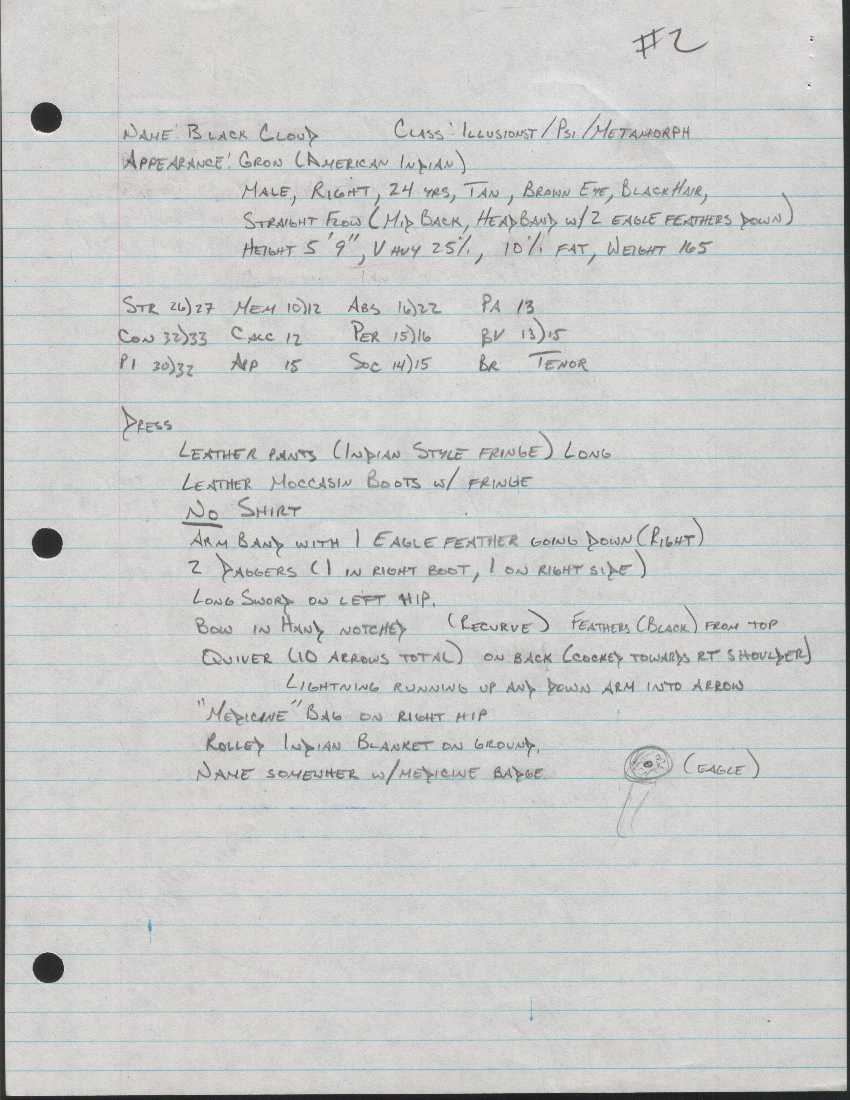 #2
NAME: BLACK CLOUD CLASS: ILLUSIONST/PSI/METAMORPH
APPEARANCE: GRON (AMERICAN INDIAN)
MALE, RIGHT, 24 YRS, TAN, BROWN EYE, BLACK HAIR,
STRAIGHT FLOW (MID BACK, HEADBAND W/2 EAGLE FEATHERS DOWN)
HEIGHT 5'9", V HVY 25%, 10% FAT, WEIGHT 165
STR 26)27 MEM 10)12 ABS 16)22 PA 13
CON 32)33 CALC 12 PER 15)16 BV 13)15
PI 30)32 APP 15 SOC 14)15 BR TENOR
DRESS
LEATHER PANTS (INDIAN STYLE FRINGE) LONG
LEATHER MOCCASIN BOOTS W/ FRINGE
NO SHIRT
ARM BAND WITH 1 EAGLE FEATHER GOING DOWN (RIGHT)
2 DAGGERS (1 IN RIGHT BOOT, 1 ON RIGHT SIDE)
LONG SWORD ON LEFT HIP.
BOW IN HAND NOTCHED (RECURVE) FEATHERS (BLACK) FROM TOP
QUIVER (10 ARROWS TOTAL) ON BACK (COCKED TOWARDS RT SHOULDER)
LIGHTNING RUNNING UP AND DOWN ARM INTO ARROW
"MEDICINE" BAG ON RIGHT HIP
ROLLED INDIAN BLANKET ON GROUND.
NAME SOMEWHER W/MEDICINE BADGE (EAGLE)